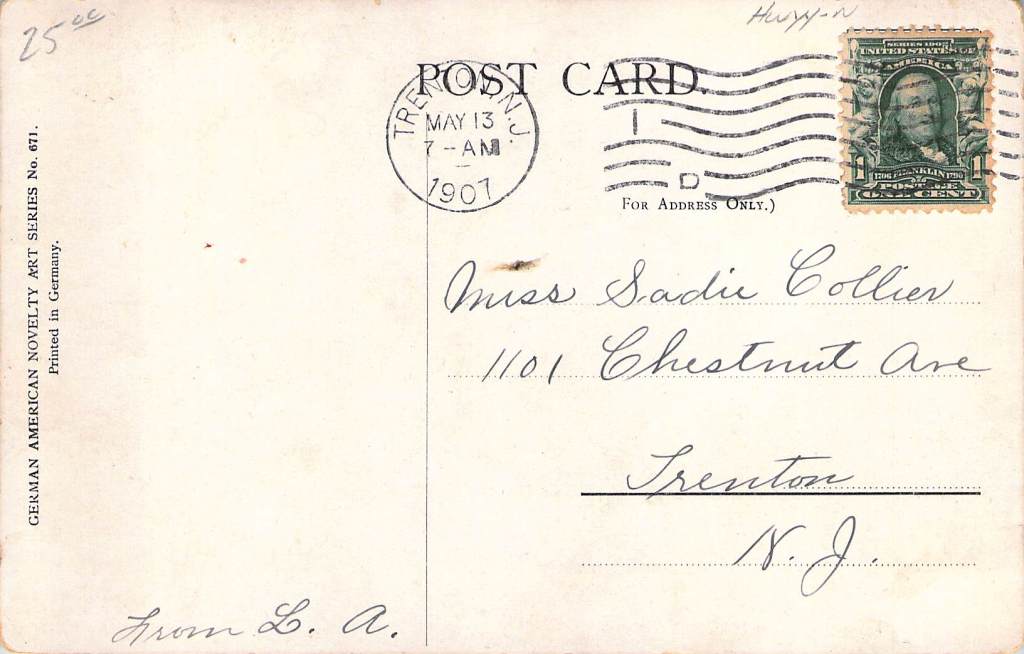 25 00
POST CARD.
TRENTON, N.J.
MAY 13
7-AM
1907
1
D
SERIES 1902
UNITED STATES OF
AMERICA
1 1
1706 FRANKLIN 1790
POSTAGE
ONE CENT
FOR ADDRESS ONLY.)
GERMAN AMERICAN NOVELTY ART SERIES No. 671.
Printed in Germany.
Miss Sadie Collier
1101 Chestnut Ave
Trenton
N. J.
From L. A.